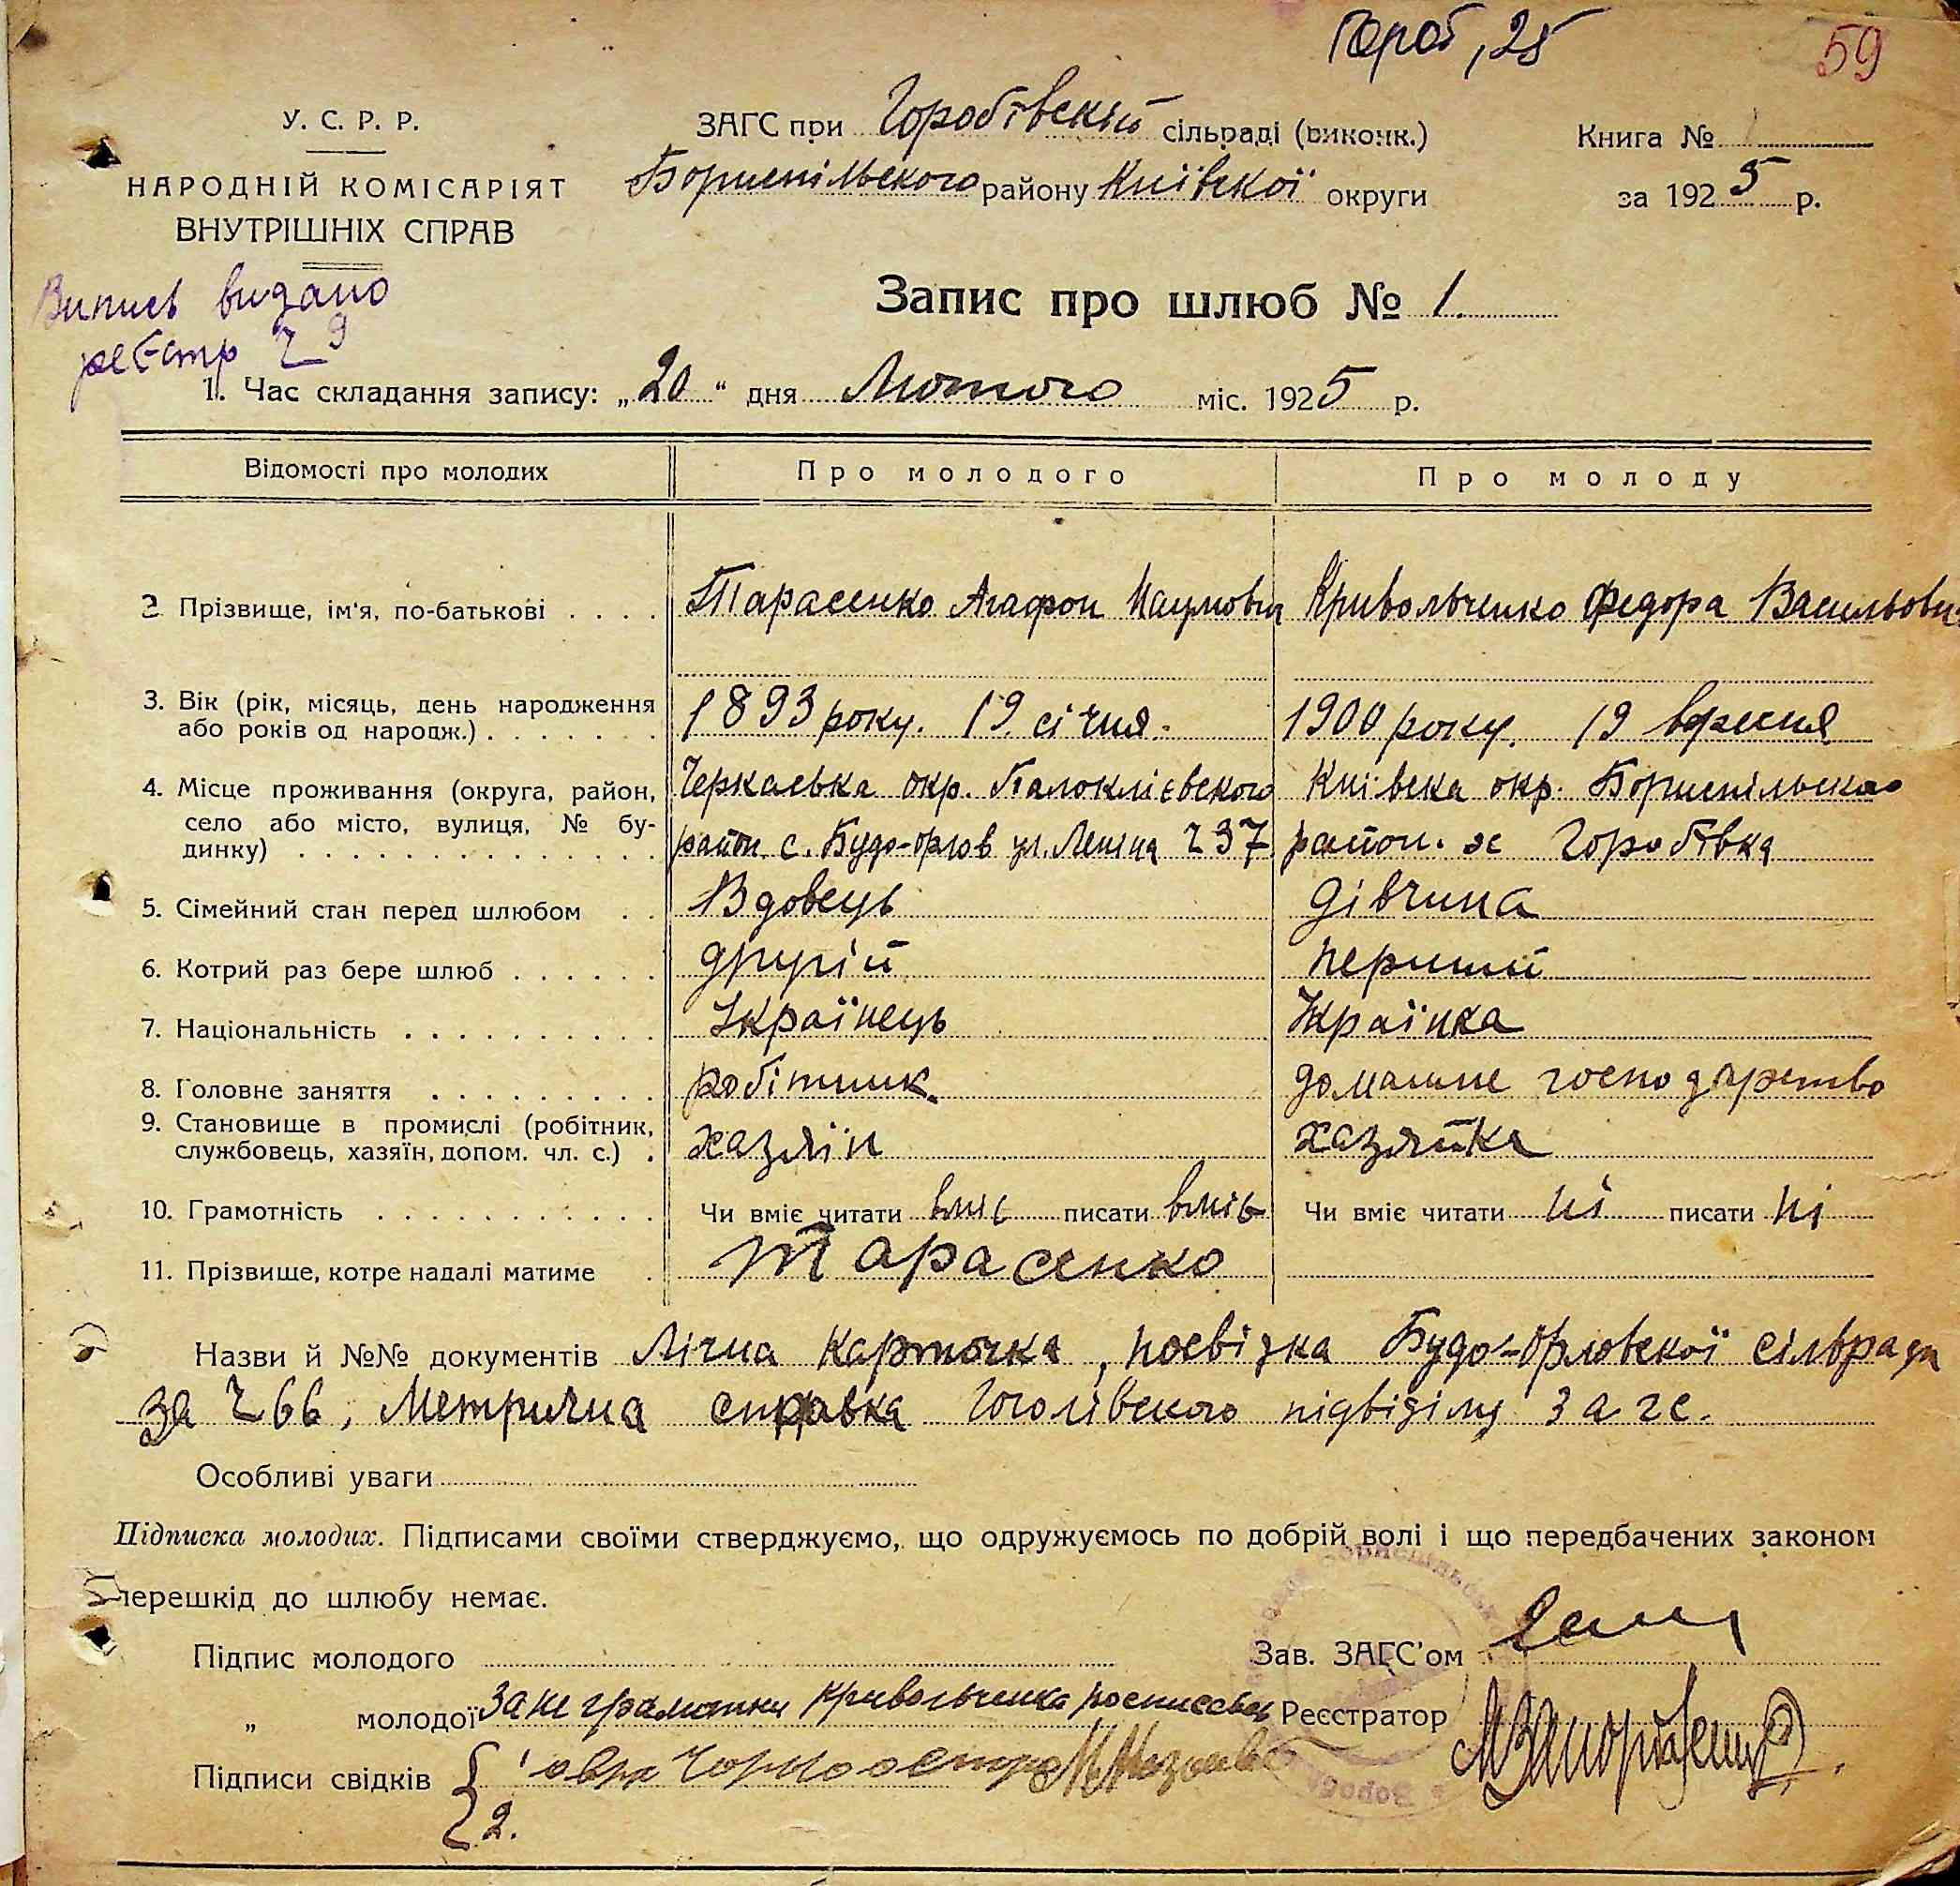 Гороб, 25
59
У. С. Р. Р.
НАРОДНІЙ КОМІСАРІЯТ
ВНУТРІШНІХ СПРАВ
ЗАГС при Горобівскій сільраді (виконк.)
Бориспільского району Київскої округи
Книга №
за 1925 р.
Випись видано
реєстр Ч 9
Запис про шлюб № 1.
1. Час складання запису: „20“ дня Лютого міс. 1925 р.
Відомості про молодих Про молодого Про молоду
2 Прізвище, ім'я, по-батькові . . . . Тарасенко Агафон Наумович Кривольченко Федора Васильовн
3. Вік (рік, місяць, день народження 1893 року. 19 січня. 1900 року. 19 вересня
або років од народж.) . . . . . . .
4. Місце проживання (округа, район, Черкаська окр. Палоклієвского Київска окр. Бориспільского
село або місто, вулиця, № бу- район с. Будо-орлов ул. Леніна Ч 37 район. Горобівка
динку) . . . . . . . . . . . . . .
5. Сімейний стан перед шлюбом . . Вдовець дівчина
6. Котрий раз бере шлюб . . . . . . другій перший
7. Національність . . . . . . . . . . Українець Українка
8. Головне заняття . . . . . . . . . робітник. домашне господарство
9. Становище в промислі (робітник, хазяїн хазяйка
службовець, хазяїн, допом. чл. с.) .
10. Грамотність . . . . . . . . . . . Чи вміє читати вміє писати вміє Чи вміє читати ні писати ні
11. Прізвище, котре надалі матиме . Тарасенко
Назви й №№ документів Лічна карточка, посвідка Будо-Орловскої сільради
за Ч 66, Метрична справка Гоголівского підвіділу загс.
Особливі уваги
Підписка молодих. Підписами своїми стверджуємо, що одружуємось по добрій волі і що передбачених законом
перешкід до шлюбу немає.
Підпис молодого Зав. ЗАГС'ом
„ молодої За не грамотни Кривольченка росписавсь Реєстратор
Підписи свідків { 1
2.